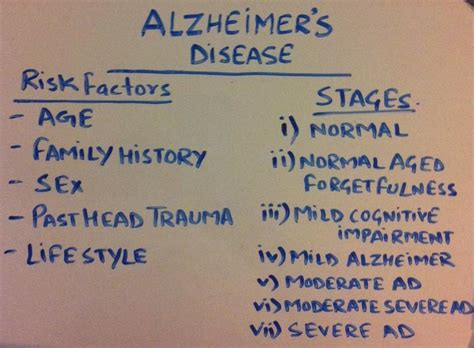 ALZHEIMER'S
DISEASE
Risk Factors
- AGE
- FAMILY HISTORY
- SEX
- PAST HEAD TRAUMA
- LIFESTYLE
STAGES.
i) NORMAL
ii) NORMAL AGED
FORGETFULNESS
iii) MILD COGNITIVE
IMPAIRMENT
iv) MILD ALZHEIMER
v) MODERATE AD
vi) MODERATE SEVERE AD
vii) SEVERE AD